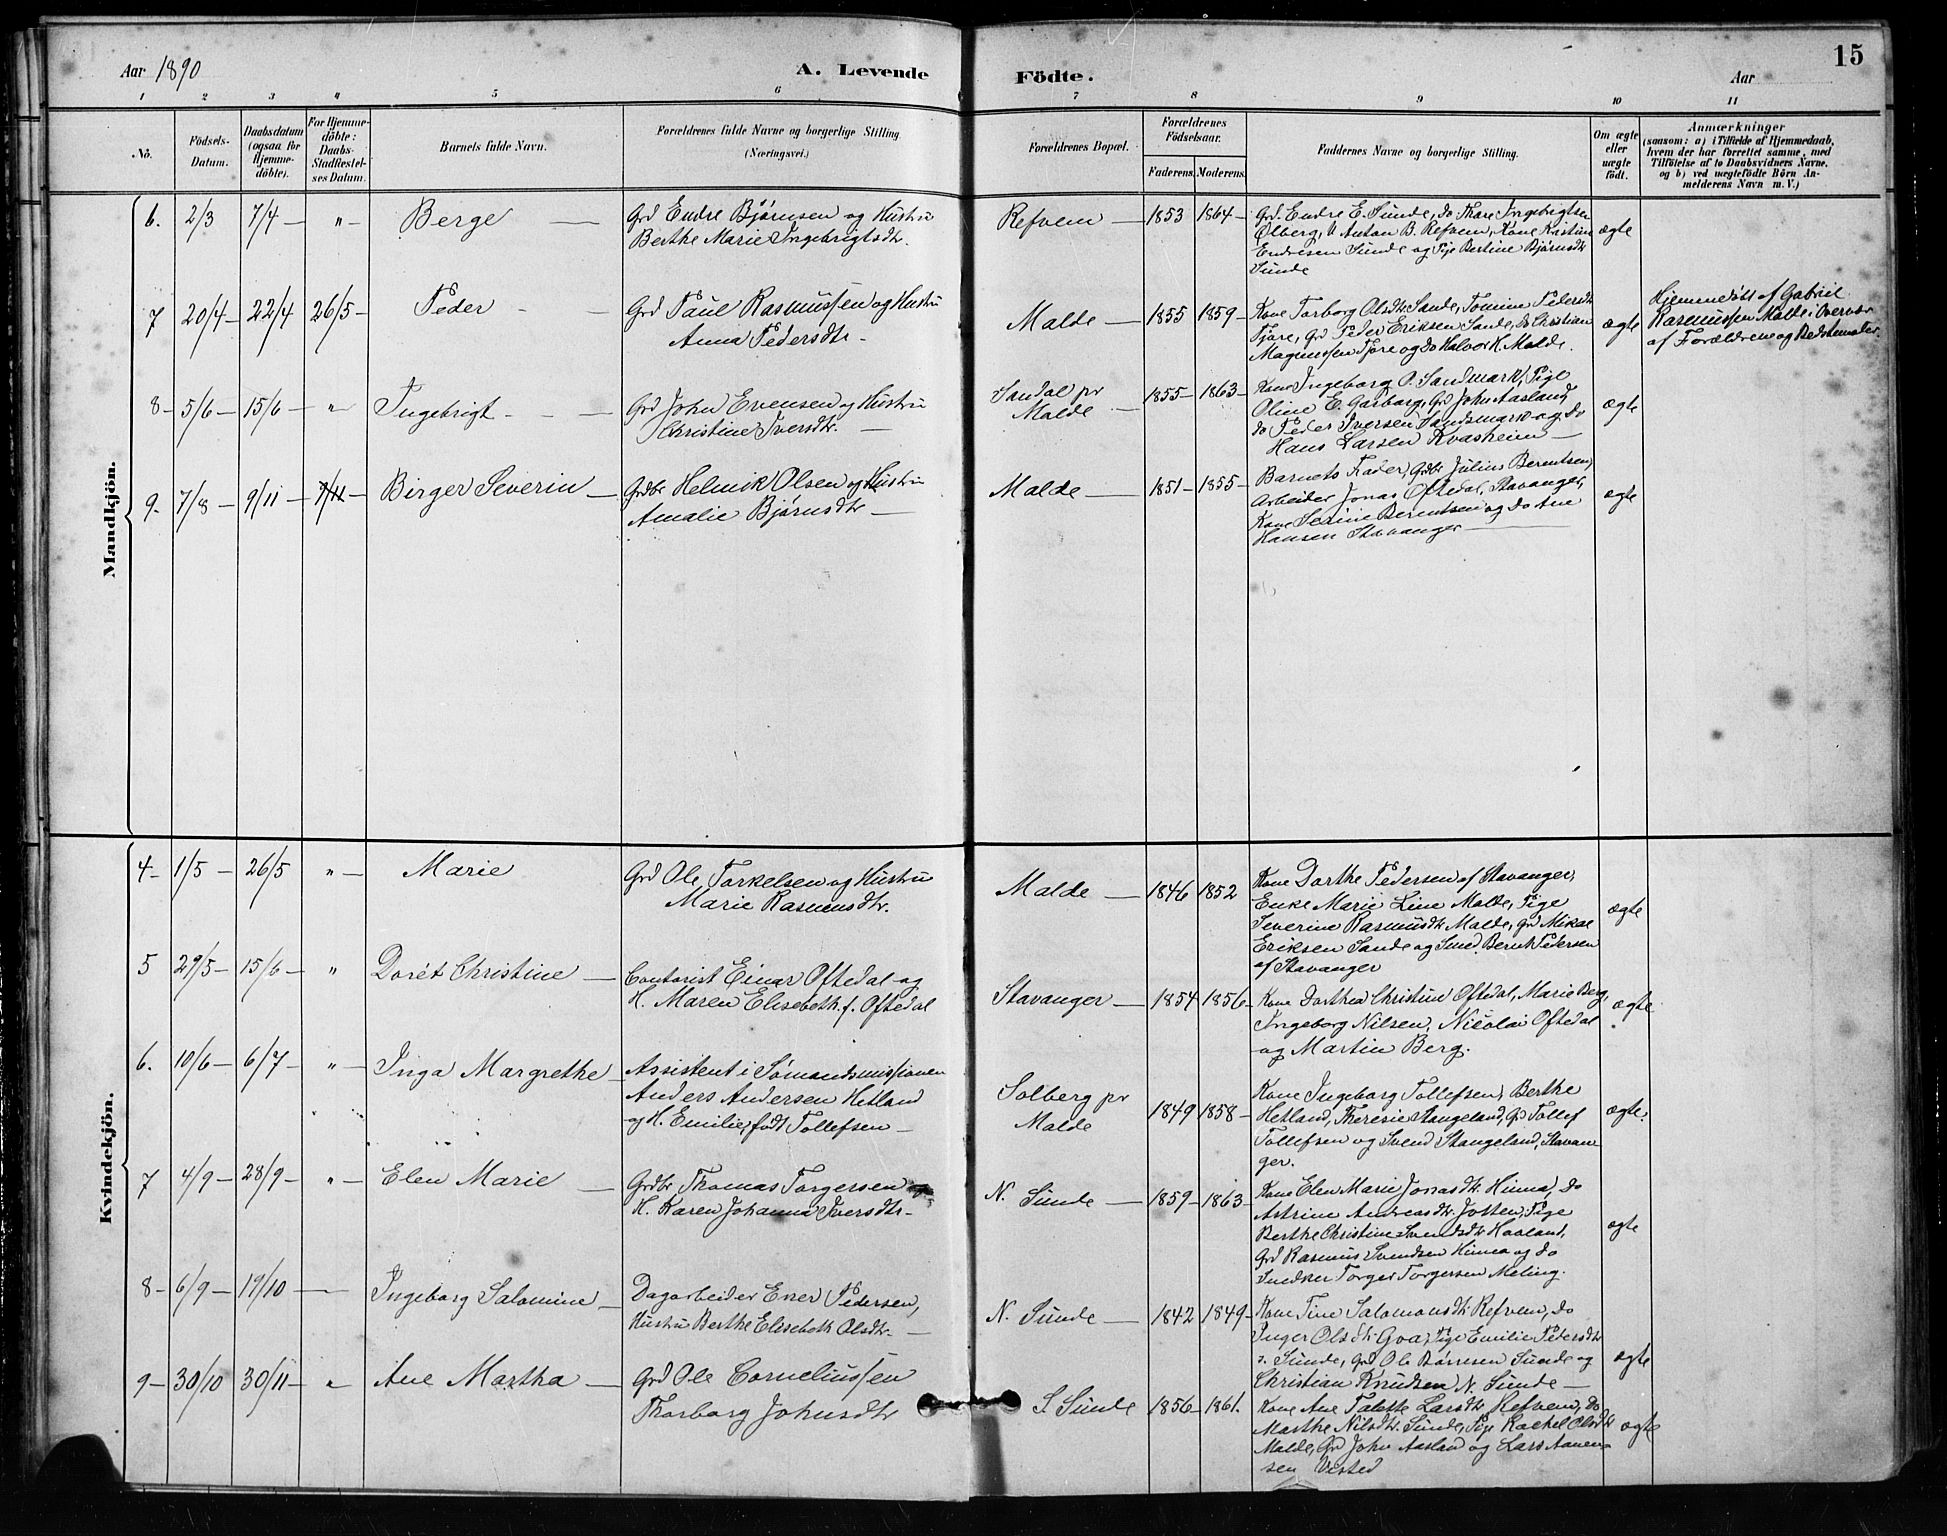 Aar 1890
A. Levende Födte.
Aar
15
1 2 3 4 5 6 7 8 9 10 11
No.
Födsels-
Datum.
Daabsdatum
(ogsaa for
Hjemme-
döbte).
For Hjemme-
döbte:
Daabs-
Stadfæstel-
ses Datum.
Barnets fulde Navn.
Forældrenes fulde Navne og borgerlige Stilling
(Næringsvei.)
Forældrenes Bopæl.
Forældrenes
Födselsaar.
Faderens. Moderens.
Faddernes Navne og borgerlige Stilling.
Om ægte
eller
uægte
födt.
Anmærkninger
(saasom: a) i Tilfælde af Hjemmedaab,
hvem der har forrettet samme, med
Tilföielse af to Daabsvidners Navne.
og b) ved uægtefödte Börn An-
melderens Navn m.V.)
Mandkjön.
6. 2/3 7/4 — " — Berge —
Grd Endre Bjørnsen og Hustru
Berthe Marie Ingebrigtsdtr.
Refvem — 1853 1864 —
Grd. Endre E. Sunde, do Thore Ingebrigtsen
Ølberg, U Anton B. Refvem, Kone Kristine
Endresen Sunde og Pige Bertine Bjørnsdtr
Sunde
ægte
7 20/4 — 22/4 26/5 — Peder — —
Grd Paul Rasmussen og Hustru
Anna Pedersdtr.
Malde — 1855 1859 —
Kone Torborg Olsdtr. Sande, Tomine Pedersdtr
Tjøre, Grd Peder Eriksen Sande, do Christian
Magnussen Tjøre og do Halvor H. Malde.
ægte
Hjemmedøbt af Gabriel
Rasmussen Malde i Overvær
af Forældrene og Bedstemoder
8 — 5/6 — 15/6 — " — Ingebrigt — —
Grd John Evensen og Hustru
Christine Iversdtr. —
Sandal pr
Malde — 1855 — 1863 —
Kone Ingeborg O. Sandmark, Pige
Oline E. Garborg, Grd John Aasland,
do Peder Iversen Sandsmark og do
Hans Larsen Kvasheim —
ægte
9 — 7/8 — 9/11 — 9/11 — Birger Severin —
Grdbr Helmik Olsen og Hustru
Amalie Bjørnsdtr —
Malde — 1851 — 1855 —
Barnets Fader, Grdbr Julius Berentsen,
Arbeider Jonas Oftedal, Stavanger,
Kone Serine Berentsen og do Ane
Hansen Stavanger —
ægte
Kvindekjön.
4 — 1/5 — 26/5 " — Marie
Grd Ole Torkelsen og Hustru
Marie Rasmusdtr.
Malde — 1846 1852
Kone Dorthe Pedersen af Stavanger,
Enke Marie Line Malde, Pige
Severine Rasmusdtr Malde, Grd Mikal
Eriksen Sande og Smed Bernt Petersen
af Stavanger
ægte
5 29/5 — 15/6 — " Dorét Christine —
Contorist Einar Oftedal og
H. Maren Elisebeth f. Oftedal
Stavanger — 1854 1856 —
Kone Dorthea Christine Oftedal, Marie Berg,
Ingeborg Nilsen, Nicolai Oftedal
og Martin Berg.
ægte
6. 10/6 — 6/7 — " — Inga Margrethe —
Assistent i Sømandsmissionen
Anders Andersen Hetland
og H. Emilie, født Tollefsen —
Solberg pr
Malde 1849 1858 —
Kone Ingeborg Tollefsen, Berthe
Hetland, Theresie Stangeland, Grd Tollef
Tollefsen og Svend Stangeland, Stavan
ger.
ægte.
7 4/9 — 28/9 — " — Elen Marie —
Grdbr Thomas Torgersen og
H. Karen Johanna Iversdtr. —
N. Sunde — 1859 — 1863 —
Kone Elen Marie Jonasdtr. Hinna, do
Astrine Andreasdtr. Jotten, Pige
Berthe Christine Svendsdtr Haaland,
Grd Rasmus Svendsen Hinna og do
Snedker Torger Torgersen Meling.
ægte
8 — 6/9 — 19/10 — Ingeborg Salomine —
Dagarbeider Ener Pedersen,
Hustru Berthe Elisebeth Olsdtr. —
N. Sunde — 1842 1849 —
Kone Tine Salomonsdtr. Refvem, do
Inger Olsdtr Goa, Pige Emilie Pedersdtr
Sunde, Grd Ole Børresen Sunde og
Christian Knudsen N. Sunde —
ægte
9 — 30/10 30/11 — " Ane Martha —
Grd Ole Corneliussen
Thorborg Johnsdtr
S. Sunde 1856 — 1861.
Kone Ane Talette Larsdtr Refvem, do
Marthe Nilsdtr. Sunde, Pige Rachel Olsdtr
Malde, Grd John Aasland og Lars Aanen-
sen Visted
ægte